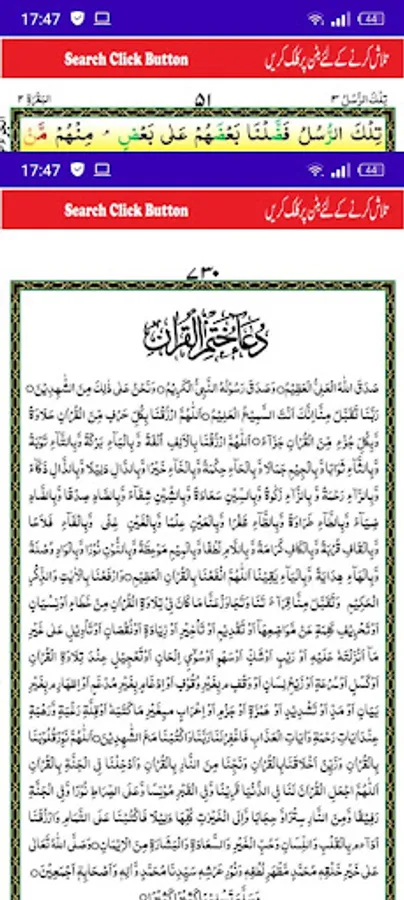 17:47 44
Search Click Button تلاش کرنے کے لئے بٹن پر کلک کریں
البقرة ٢ ٥١ تلك الرسل ٣
تِلْكَ الرُّسُلُ فَضَّلْنَا بَعْضَهُمْ عَلٰى بَعْضٍ ۘ مِنْهُمْ مَّنْ
17:47 44
Search Click Button تلاش کرنے کے لئے بٹن پر کلک کریں
٧٣٠
دُعَاۤءُ خَتْمِ الْقُرْاٰنِ
صَدَقَ اللّٰهُ الْعَلِىُّ الْعَظِيْمُ وَصَدَقَ رَسُوْلُهُ النَّبِىُّ الْكَرِيْمُ وَنَحْنُ عَلٰى ذٰلِكَ مِنَ الشّٰهِدِيْنَ
رَبَّنَا تَقَبَّلْ مِنَّا اِنَّكَ اَنْتَ السَّمِيْعُ الْعَلِيْمُ اَللّٰهُمَّ ارْزُقْنَا بِكُلِّ حَرْفٍ مِّنَ الْقُرْاٰنِ حَلَاوَةً
وَّبِكُلِّ جُزْءٍ مِّنَ الْقُرْاٰنِ جَزَآءً اَللّٰهُمَّ ارْزُقْنَا بِالْاَلِفِ اُلْفَةً وَّبِالْبَآءِ بَرَكَةً وَّبِالتَّآءِ تَوْبَةً
وَّبِالثَّآءِ ثَوَابًا وَّبِالْجِيْمِ جَمَالًا وَّبِالْحَآءِ حِكْمَةً وَّبِالْخَآءِ خَيْرًا وَّبِالدَّالِ دَلِيْلًا وَّبِالذَّالِ ذَكَآءً
وَّبِالرَّآءِ رَحْمَةً وَّبِالزَّآءِ زَكٰوةً وَّبِالسِّيْنِ سَعَادَةً وَّبِالشِّيْنِ شِفَآءً وَّبِالصَّادِ صِدْقًا وَّبِالضَّادِ
ضِيَآءً وَّبِالطَّآءِ طَرَاوَةً وَّبِالظَّآءِ ظَفْرًا وَّبِالْعَيْنِ عِلْمًا وَّبِالْغَيْنِ غِنًى وَّبِالْفَآءِ فَلَاحًا
وَّبِالْقَافِ قُرْبَةً وَّبِالْكَافِ كَرَامَةً وَّبِاللَّامِ لُطْفًا وَّبِالْمِيْمِ مَوْعِظَةً وَّبِالنُّوْنِ نُوْرًا وَّبِالْوَاوِ وُصْلَةً
وَّبِالْهَآءِ هِدَايَةً وَّبِالْيَآءِ يَقِيْنًا اَللّٰهُمَّ انْفَعْنَا بِالْقُرْاٰنِ الْعَظِيْمِ وَارْفَعْنَا بِالْاٰيٰتِ وَالذِّكْرِ
الْحَكِيْمِ وَتَقَبَّلْ مِنَّا قِرَآءَتَنَا وَتَجَاوَزْ عَنَّا مَا كَانَ فِىْ تِلَاوَةِ الْقُرْاٰنِ مِنْ خَطَاءٍ اَوْ نِسْيَانٍ
اَوْ تَحْرِيْفِ كَلِمَةٍ عَنْ مَّوَاضِعِهَا اَوْ تَقْدِيْمٍ اَوْ تَاْخِيْرٍ اَوْ زِيَادَةٍ اَوْ نُقْصَانٍ اَوْ تَاْوِيْلٍ عَلٰى غَيْرِ
مَا اَنْزَلْتَهُ عَلَيْهِ اَوْ رَيْبٍ اَوْ شَكٍّ اَوْ سَهْوٍ اَوْ سُوْٓءِ اِلْحَانٍ اَوْ تَعْجِيْلٍ عِنْدَ تِلَاوَةِ الْقُرْاٰنِ
اَوْ كَسَلٍ اَوْ سُرْعَةٍ اَوْ زَيْغِ لِسَانٍ اَوْ وَقْفٍ بِغَيْرِ وُقُوْفٍ اَوْ اِدْغَامٍ بِغَيْرِ مُدْغَمٍ اَوْ اِظْهَارٍ بِغَيْرِ
بَيَانٍ اَوْ مَدٍّ اَوْ تَشْدِيْدٍ اَوْ هَمْزَةٍ اَوْ جَزْمٍ اَوْ اِعْرَابٍ بِغَيْرِ مَا كَتَبَهُ اَوْ قِلَّةِ رَغْبَةٍ وَّرَهْبَةٍ
عِنْدَ اٰيَاتِ رَحْمَةٍ وَّاٰيَاتِ الْعَذَابِ فَاغْفِرْلَنَا رَبَّنَا وَاكْتُبْنَا مَعَ الشّٰهِدِيْنَ اَللّٰهُمَّ نَوِّرْ قُلُوْبَنَا
بِالْقُرْاٰنِ وَزَيِّنْ اَخْلَاقَنَا بِالْقُرْاٰنِ وَنَجِّنَا مِنَ النَّارِ بِالْقُرْاٰنِ وَاَدْخِلْنَا فِى الْجَنَّةِ بِالْقُرْاٰنِ
اَللّٰهُمَّ اجْعَلِ الْقُرْاٰنَ لَنَا فِى الدُّنْيَا قَرِيْنًا وَّفِى الْقَبْرِ مُوْنِسًا وَّعَلَى الصِّرَاطِ نُوْرًا وَّفِى الْجَنَّةِ
رَفِيْقًا وَّمِنَ النَّارِ سِتْرًا وَّحِجَابًا وَّاِلَى الْخَيْرَاتِ كُلِّهَا دَلِيْلًا فَاكْتُبْنَا عَلَى التَّمَامِ وَارْزُقْنَا
اَدَآءً بِالْقَلْبِ وَاللِّسَانِ وَحُبِّ الْخَيْرِ وَالسَّعَادَةِ وَالْبَشَارَةِ مِنَ الْاِيْمَانِ وَصَلَّى اللّٰهُ تَعَالٰى
عَلٰى خَيْرِ خَلْقِهٖ مُحَمَّدٍ مَّظْهَرِ لُطْفِهٖ وَنُوْرِ عَرْشِهٖ سَيِّدِنَا مُحَمَّدٍ وَّاٰلِهٖ وَاَصْحَابِهٖ اَجْمَعِيْنَ
وَسَلَّمَ تَسْلِيْمًا كَثِيْرًا كَثِيْرًا